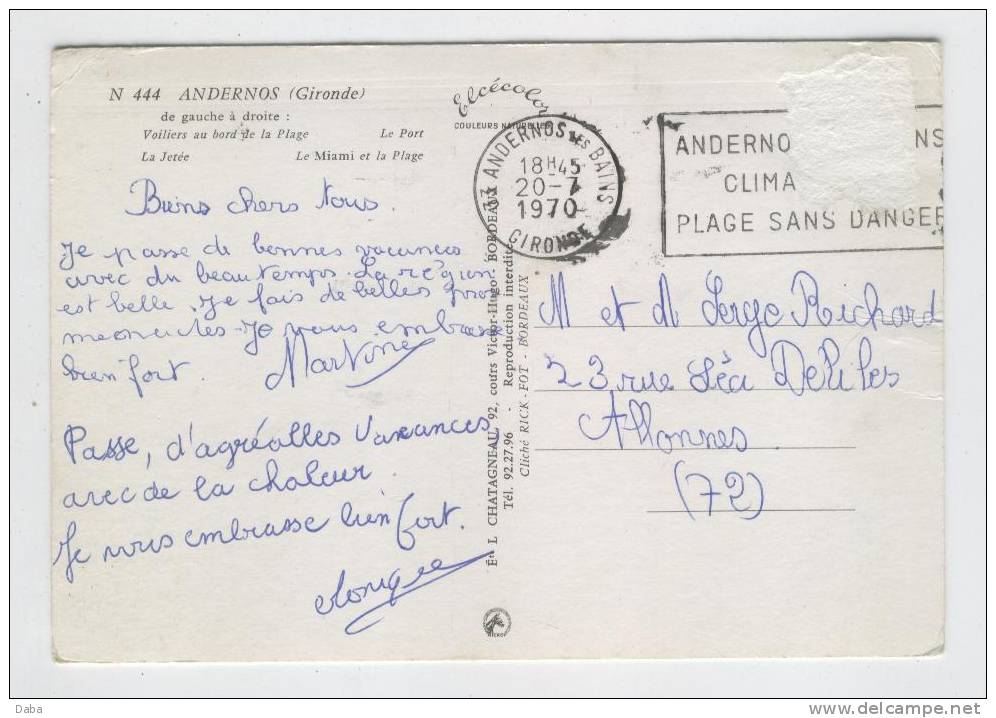 N 444 ANDERNOS (Gironde)
de gauche à droite :
Voiliers au bord de la Plage Le Port
La Jetée Le Miami et la Plage
Elcécolor
COULEURS NATURELLES
33 ANDERNOS LES BAINS
18H45
20-7
1970
GIRONDE
ANDERNO NS
CLIMA
PLAGE SANS DANGER
Biens chers tous.
Je passe de bonnes vacances
avec du beau temps. La région
est belle. Je fais de belles
Je vous embrasse
bien fort. Martine
Passe, d'agréalles vacances
avec de la chaleur.
Je vous embrasse bien fort.
Éts L. CHATAGNEAU 92, cours Victor-Hugo - BORDEAUX
Tél. 92.27.96 - Reproduction interdite
Cliché RICK-FOT - BORDEAUX
M et M Serge Richard
23 rue Léa Delibes
Allonnes
(72)
Daba
www.delcampe.net